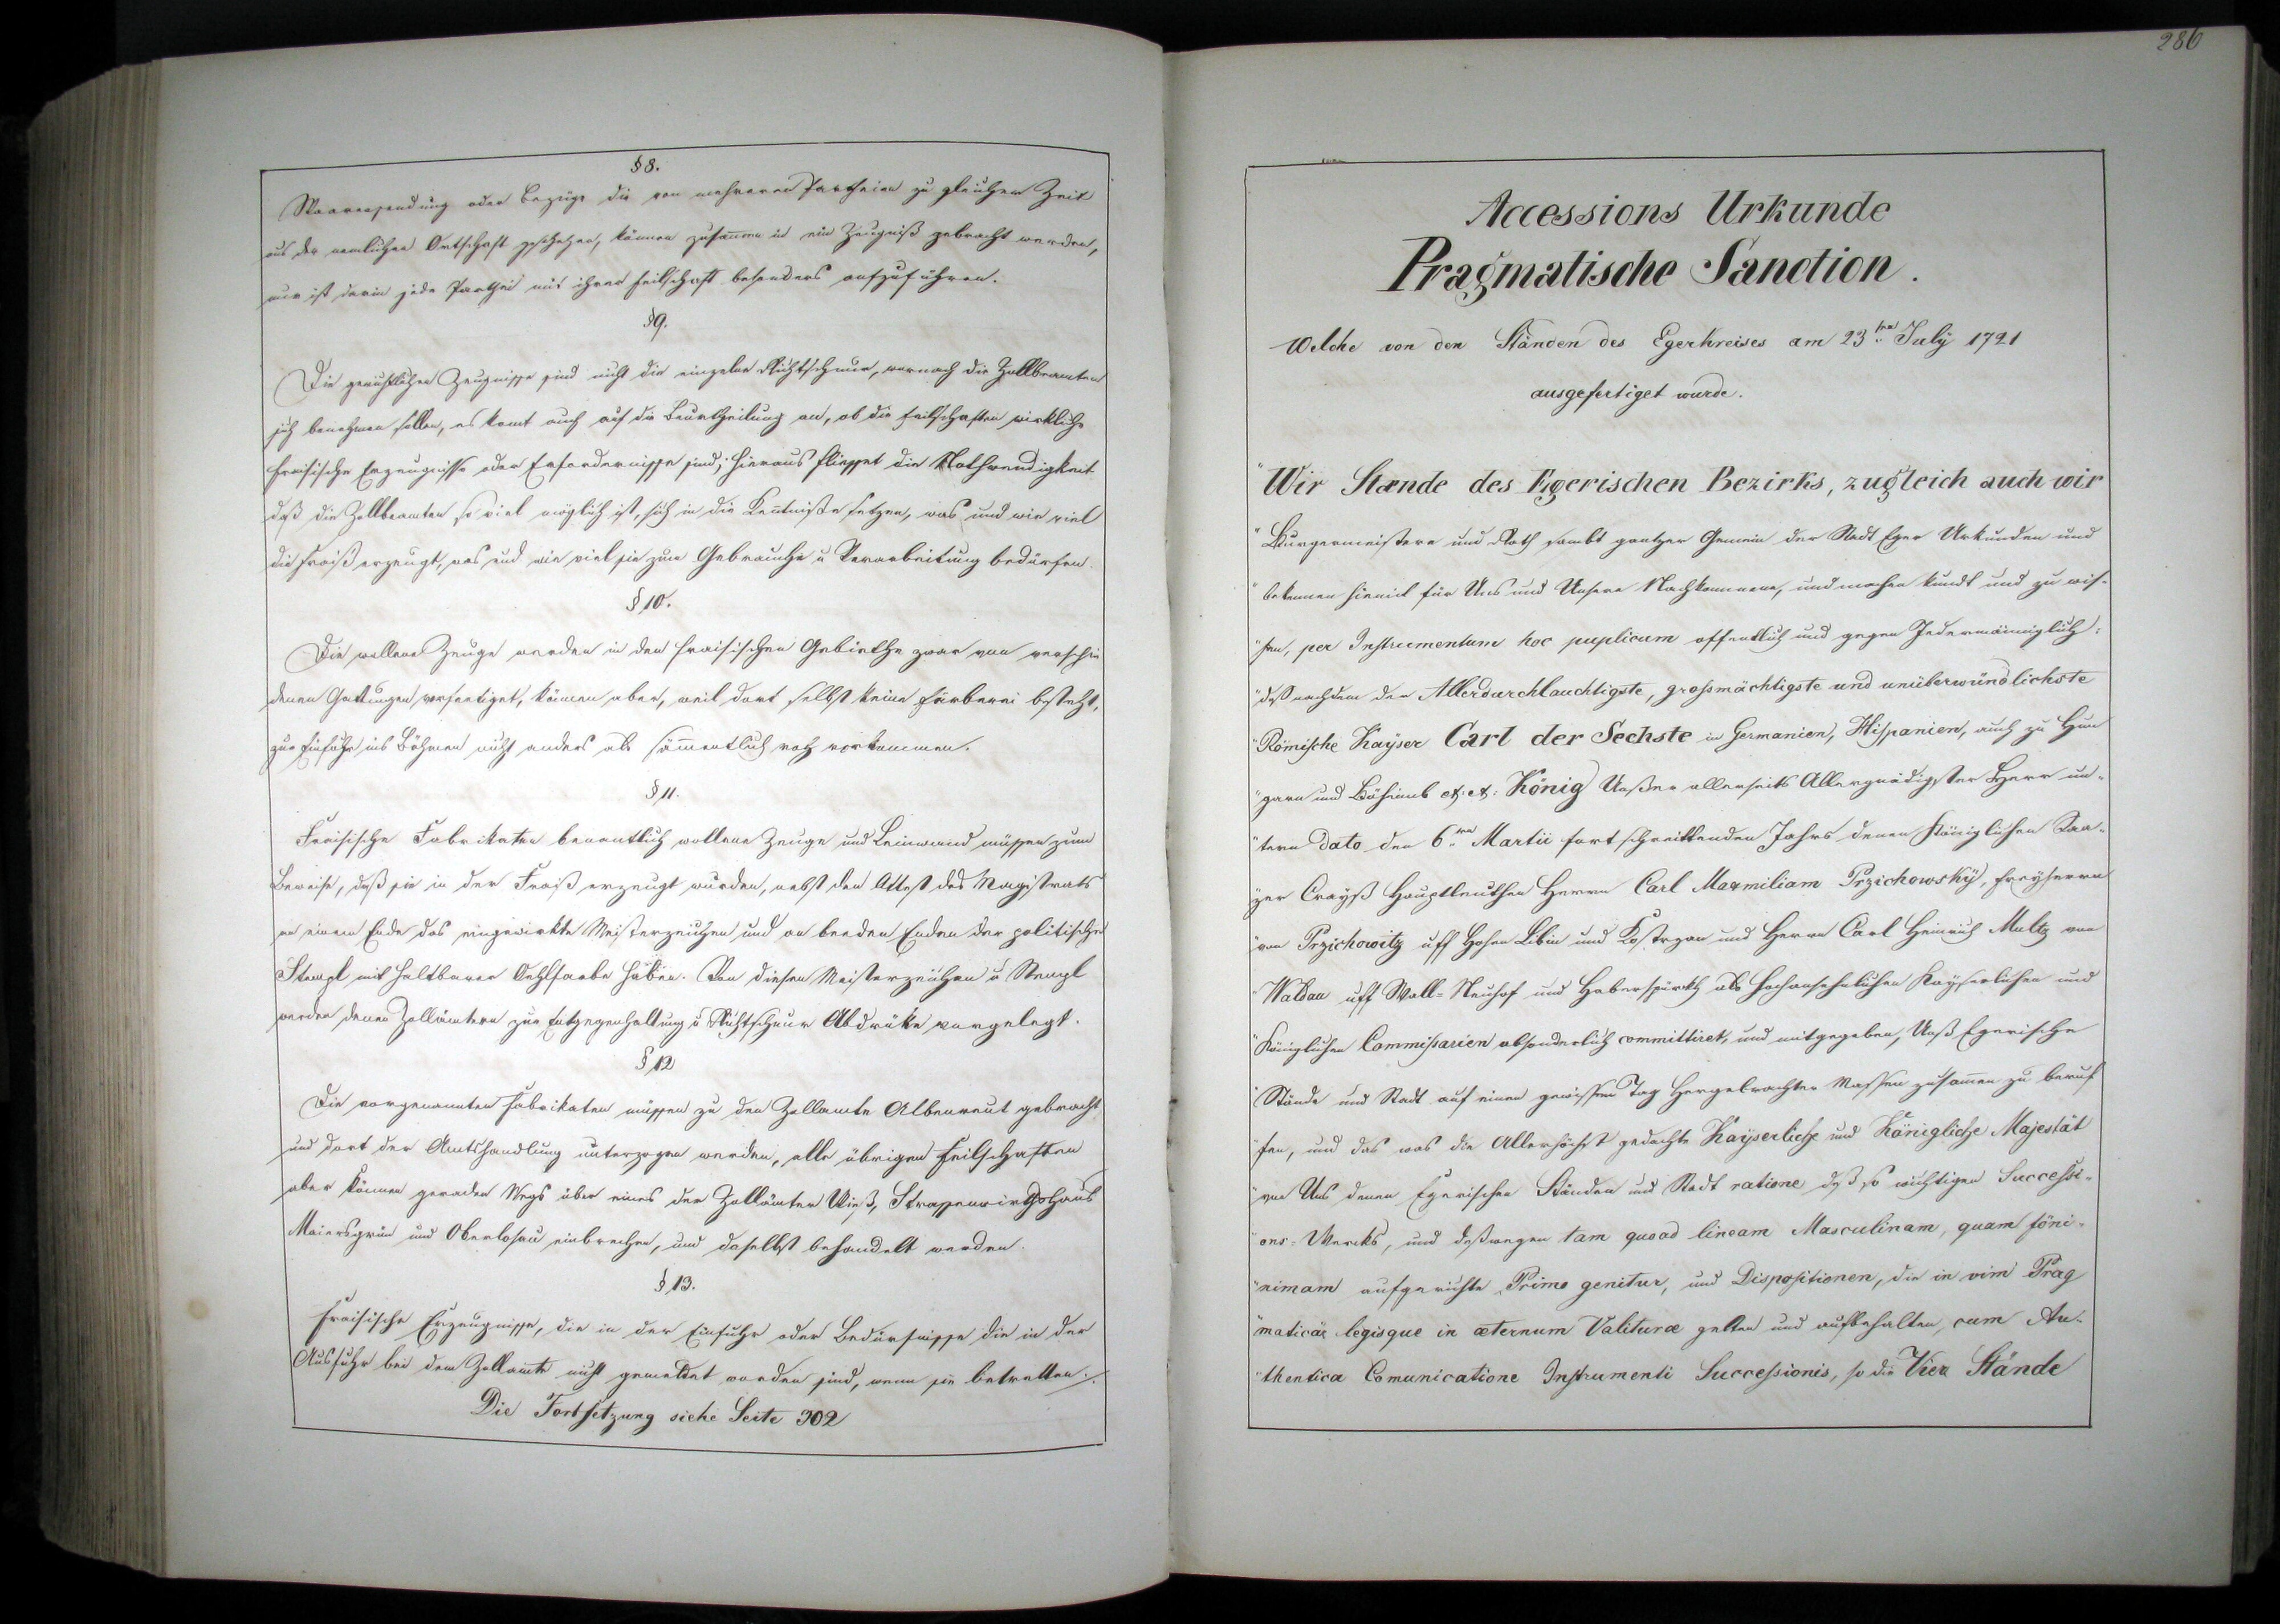 § 8.
Waarensendung oder Bezüge die von mehreren Partheien zu gleicher Zeit
aus der nemlichen Ortschaft geschehen, können zusamen in ein Zeugniß gebracht werden,
nur ist darin jede Parthei mit ihrer Feilschaft besonders aufzuführen.
§ 9.
Die gerichtlichen Zeugnisse sind nicht die einzelne Richtschnur, wornach die Zollbeamten
sich benehmen sollen, es komt auch auf die Beurtheilung an, ob die Feilschaften wirkliche
fraisische Erzeugnisse oder Erfordernisse sind; hieraus fliesset die Nothwendigkeit
daß die Zollbeamten so viel möglich ist, sich in die Kentniße setzen, was und wie viel
die Fraiß erzeugt, was und wie viel sie zum Gebrauche u Verarbeitung bedürfen.
§ 10.
Die wollene Zeuge werden in den fraisischen Gebiethe zwar von verschie
denen Gattungen verfertiget, können aber, weil dort selbst keine Färberei besteht,
zur Einfuhr ins Böhmen nicht anders als sämmentlich roh vorkommen.
§ 11.
Fraisische Fabrikaten benantlich wollene Zeuge und Leinwand müssen zum
Beweise, daß sie in der Fraiß erzeugt wurden, nebst den Attest des Magistrats
an einem Ende das eingewirkte Meisterzeichen und an beeden Enden der politische
Stempl mit haltbarer Oehlfarbe haben. Von diesen Meisterzeichen u Stempl
werden denen Zollämtern zur Entgegenhaltung u Richtschnur Abdrüke vorgelegt.
§ 12
Die vorgenannten Fabrikaten müssen zu den Zollamte Albenreut gebracht
und dort der Amtshandlung unterzogen werden, alle übrigen Feilschaften
aber können geraden Wegs über eines der Zollämter Wieß, Strassenwirthshaus
Maiersgrün und Oberlosau einbrechen, und daselbst behandelt werden.
§ 13.
Fraisische Erzeugnisse, die in der Einfuhr oder Bedürfnisse die in der
Ausfuhr bei dem Zollamte nicht gemeldet worden sind, wenn sie betretten ./.
Die Fortsetzung siehe Seite 302
286
Accessions Urkunde
Pragmatische Sanction.
Welche von den Ständen des Egerkreises am 23ten July 1721
ausgefertiget wurde.
"Wir Stænde des Egerischen Bezirks, zugleich auch wir
"Burgermeistere und Rath sambt gantzer Gemein der Stadt Eger Urkunden und
"bekennen hiemit für Uns und Unsere Nachkommene, und machen kundt und zu wis-
"sen, per Instrumentum hoc puplicum offentlich und gegen Jedermänniglich:
"deß nachdem der Allerdurchlauchtigste, großmächtigste und unüberwündlichste
"Römische Kayser Carl der Sechste in Germanien, Hispanien, auch zu Hun
"garn und Böheimb et: et: König Unßer allerseits Allergnädigster Herr un-
"term dato den 6ten Martii fortschreittenden Jahrs denen Königlichen Saa-
"zer Crayß Hauptleuthen Herrn Carl Maxmiliam Przichowskÿ, Freyherrn
"von Przichowitz uff Hohen Libin und Kostrzan und Herrn Carl Heinrich Multz von
"Waldau uff Wall-Neuhof und Haberspürkh als Hochansehnlichen Kayserlichen und
"Königlichen Commißarien absonderlich committiret, und mitgegeben, Unß Egerische
"Stände und Stadt auf einen gewissen Tag Hergebrachter Massen zusamen zu beruf
"fen, und das was die Allerhöchst gedachte Kayserliche und Königliche Majestät
"von Uns denen Egerischen Ständen und Stadt ratione deß so wichtigen Successi-
"ons-Wercks, und deßwegen tam quoad lineam Masculinam, quam föni-
"nimam aufgerichte Primo genitur, und Dispositionen, die in vim Prag
"maticæ legisque in æternum Valituræ gelten und aufbehalten, cum Au-
"thentica Comunicatione Instrumenti Successionis, so die Vier Stände